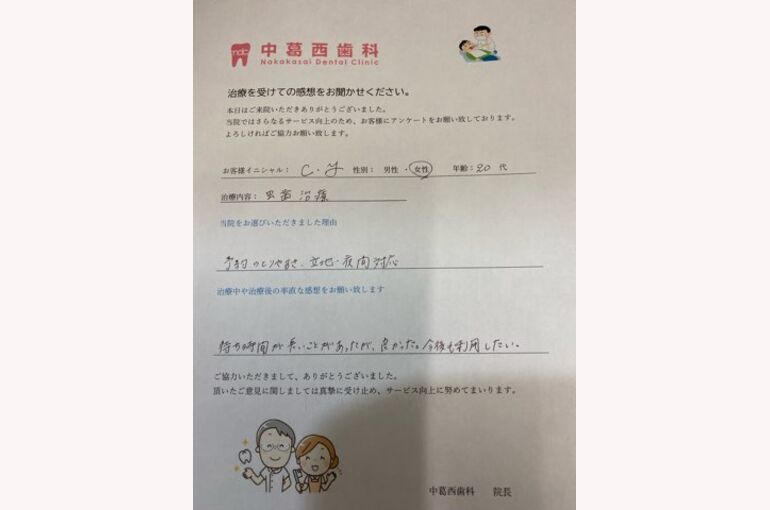 ndc 中葛西歯科
Nakakasai Dental Clinic
治療を受けての感想をお聞かせください。
本日はご来院いただきありがとうございました。
当院ではさらなるサービス向上のため、お客様にアンケートをお願い致しております。
よろしければご協力お願い致します。
お客様イニシャル： C.Y 性別： 男性 ・ 女性 年齢：20 代
治療内容： 虫歯 治療
当院をお選びいただきました理由
予約のとりやすさ、立地・夜間対応
治療中や治療後の率直な感想をお願い致します
待ち時間が長いことがあったが、良かった。今後も利用したい。
ご協力いただきまして、ありがとうございました。
頂いたご意見に関しましては真摯に受け止め、サービス向上に努めてまいります。
中葛西歯科 院長